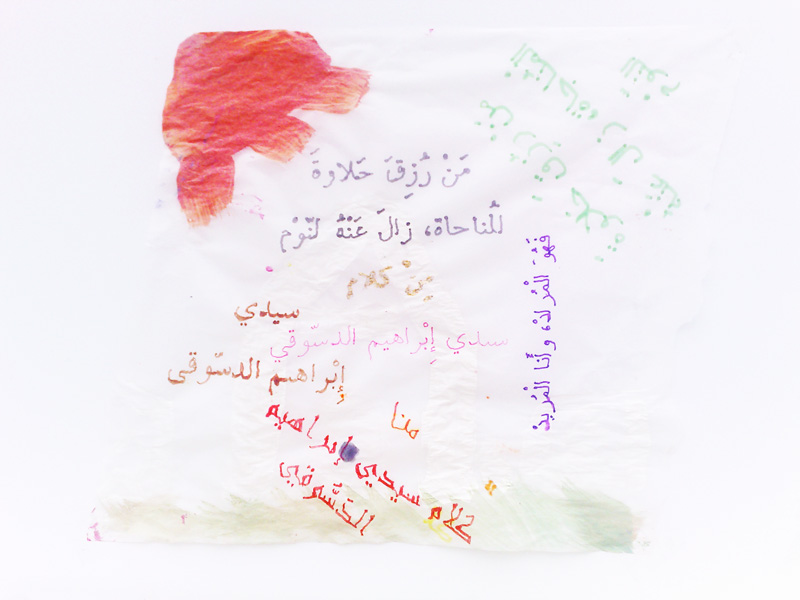 مَنْ رُزِقَ حَلاوةَ
لمُناحاة، زالَ عَنْهُ لنّوْم
مِنْ كلام
سيدي
سيدي إِبْراهيم الدسّوقي
إِبْراهيم الدسّوقي
منا
كلام سيدي إبراهيم
الدَسُّوقي
فَهُوَ الْمُرادْ، وأَنا الْمُريدْ